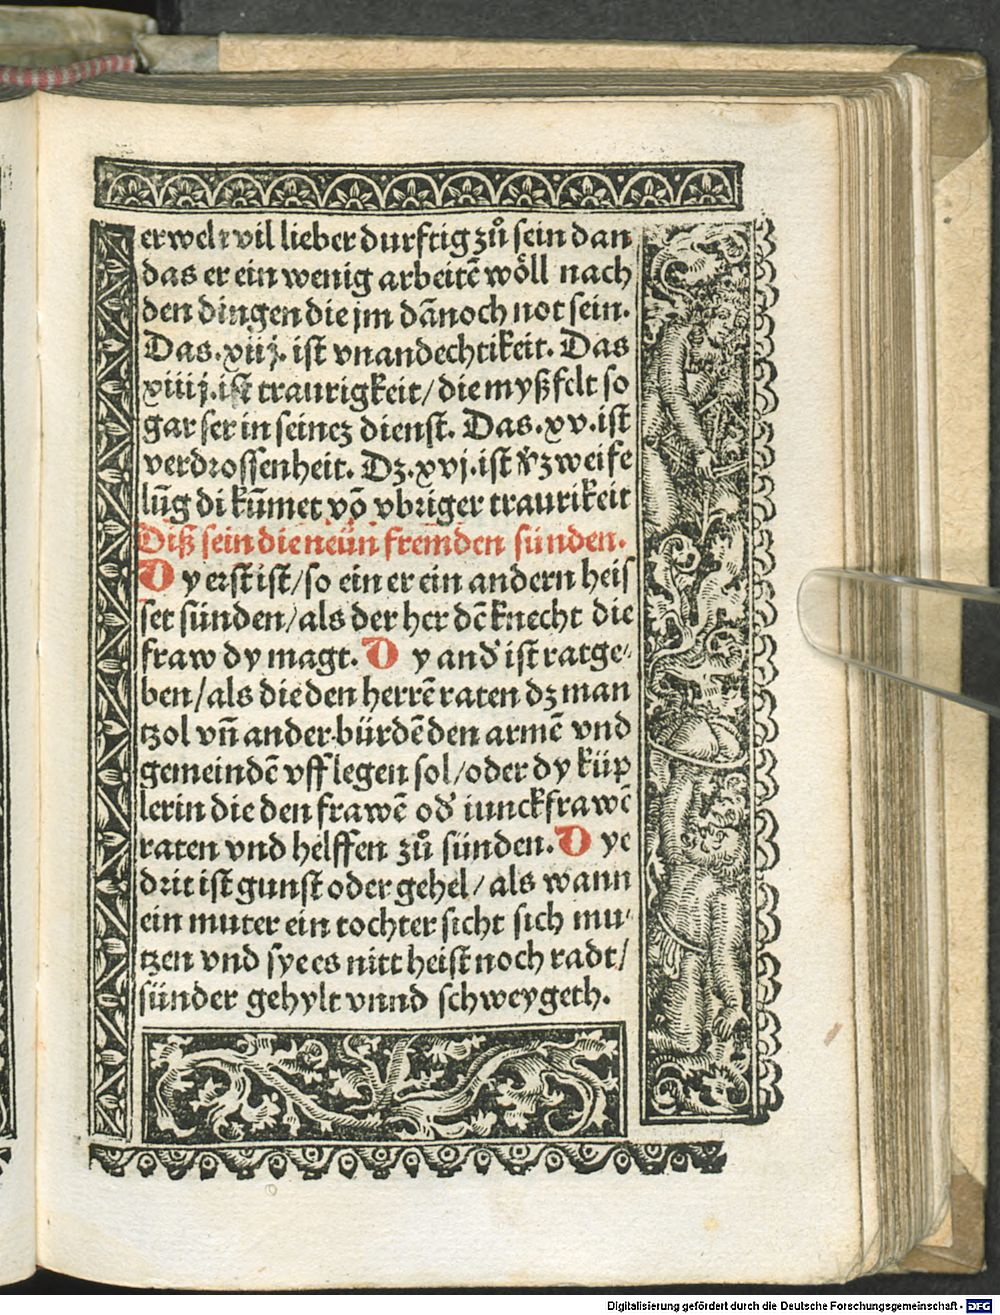 erwelt vil lieber durftig zuͦ sein dan
das er ein wenig arbeitē woͤll nach
den dingen die jm dānoch not sein.
Das .xiij. ist vnandechtikeit. Das
xiiij. ist traurigkeit/ die myßfelt so
gar ser in seineꝫ dienst. Das .xv. ist
verdrossenheit. Dꝫ .xvj. ist dͤ zweife
lūg di kūmet vō vbriger traurikeit
Diß sein die neün fremden sünden.
Dy erst ist/ so einer ein andern heis
set sünden/ als der her dē knecht die
fraw dy magt. Dy andͤ ist ratge⸗
ben/ als die den herrē raten dꝫ man
tzol vn̄ ander bürdē den armē vnd
gemeindē vff legen sol/ oder dy küp
lerin die den frawē odͤ iunckfrawē
raten vnd helffen zuͦ sünden. Dye
drit ist gunst oder gehel/ als wann
ein muter ein tochter sicht sich mu⸗
tzen vnd sye es nitt heist noch radt/
sünder gehylt vnnd schweygeth.
Digitalisierung gefördert durch die Deutsche Forschungsgemeinschaft - DFG